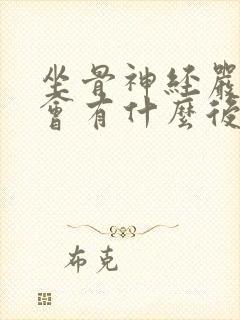 坐骨神経嚴
會有什麼後
布克